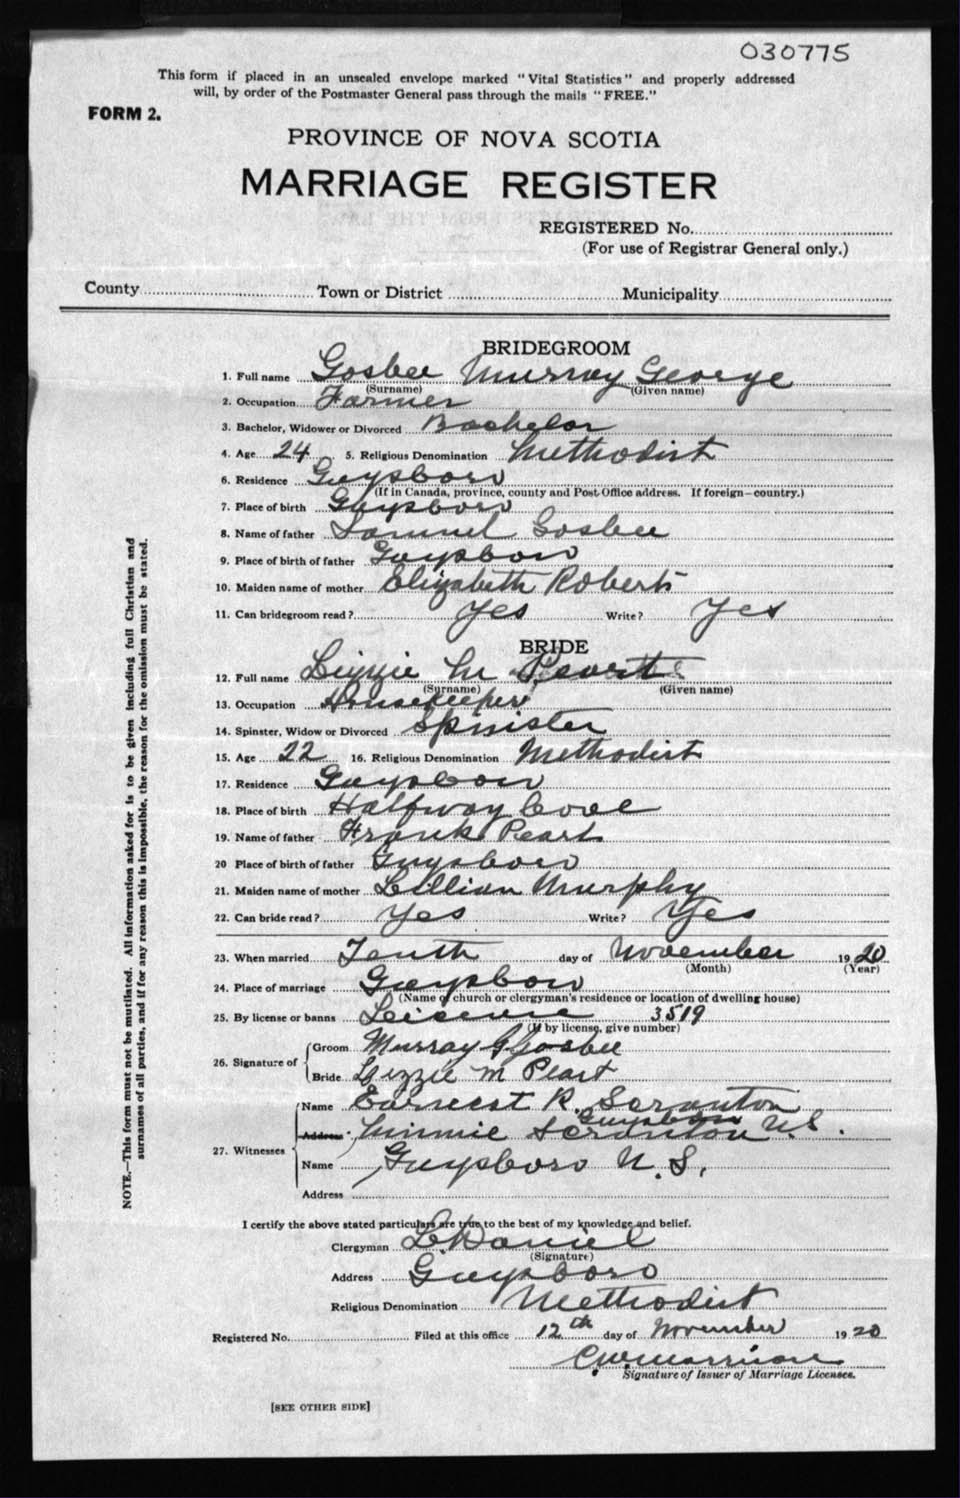 030775
This form if placed in an unsealed envelope marked "Vital Statistics" and properly addressed
will, by order of the Postmaster General pass through the mails "FREE."
FORM 2.
PROVINCE OF NOVA SCOTIA
MARRIAGE REGISTER
REGISTERED No.
(For use of Registrar General only.)
County Town or District Municipality
BRIDEGROOM
1. Full name Gosbee Murray George
(Surname) (Given name)
2. Occupation Farmer
3. Bachelor, Widower or Divorced Bachelor
4. Age 24 5. Religious Denomination Methodist
6. Residence Guysboro
(If in Canada, province, county and Post Office address. If foreign—country.)
7. Place of birth Guysboro
8. Name of father Samuel Gosbee
9. Place of birth of father Guysboro
10. Maiden name of mother Elizabeth Roberts
11. Can bridegroom read? Yes Write? Yes
BRIDE
12. Full name Lizzie M Peart
(Surname) (Given name)
13. Occupation Housekeeper
14. Spinster, Widow or Divorced Spinster
15. Age 22 16. Religious Denomination Methodist
17. Residence Guysboro
18. Place of birth Halfway Cove
19. Name of father Frank Peart
20 Place of birth of father Guysboro
21. Maiden name of mother Lillian Murphy
22. Can bride read? Yes Write? Yes
23. When married Tenth day of November 1920
(Month) (Year)
24. Place of marriage Guysboro
(Name of church or clergyman's residence or location of dwelling house)
25. By license or banns License 3519
(If by license, give number)
26. Signature of
Groom Murray G Gosbee
Bride Lizzie M Peart
27. Witnesses
Name Earnest R. Scranton
Guysboro N.S.
Address Minnie Scranton
Name Guysboro N.S.
Address
I certify the above stated particulars are true to the best of my knowledge and belief.
Clergyman L Daniel
(Signature)
Address Guysboro
Religious Denomination Methodist
Registered No. Filed at this office 12th day of November 1920
Signature of Issuer of Marriage Licenses.
[SEE OTHER SIDE]
NOTE.—This form must not be mutilated. All information asked for is to be given including full Christian and
surnames of all parties, and if for any reason this is impossible, the reason for the omission must be stated.